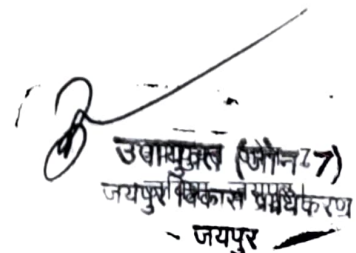 उपायुक्त (जोन-7)
जयपुर विकास प्राधिकरण
जयपुर